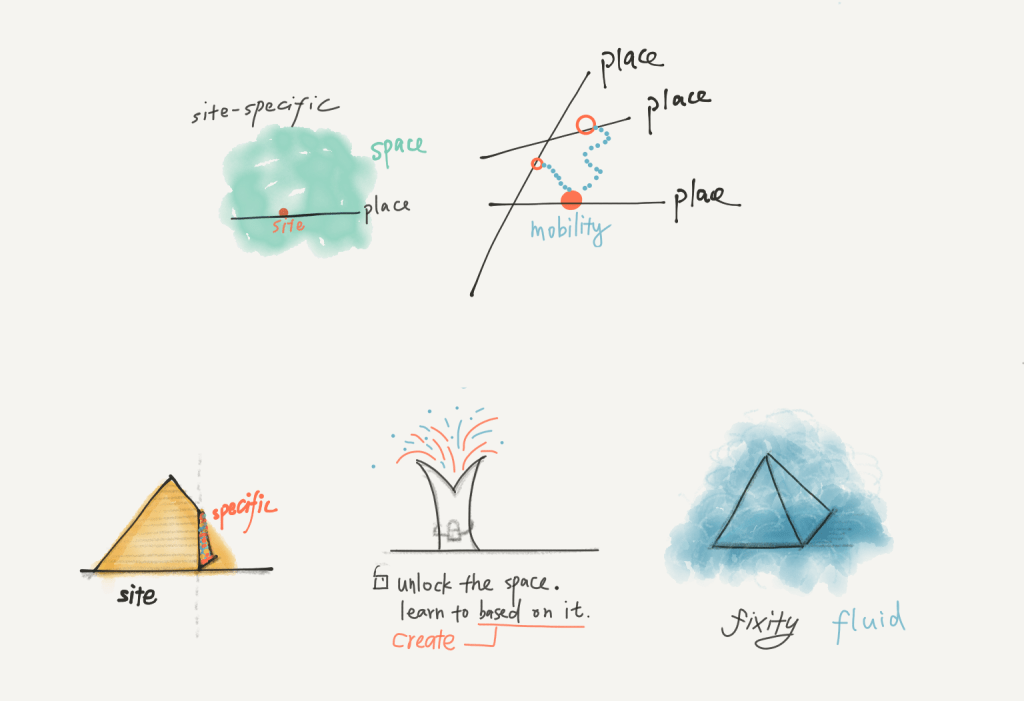 site-specific
space
place
site
place
place
place
mobility
specific
site
unlock the space.
learn to based on it.
create
fixity
fluid